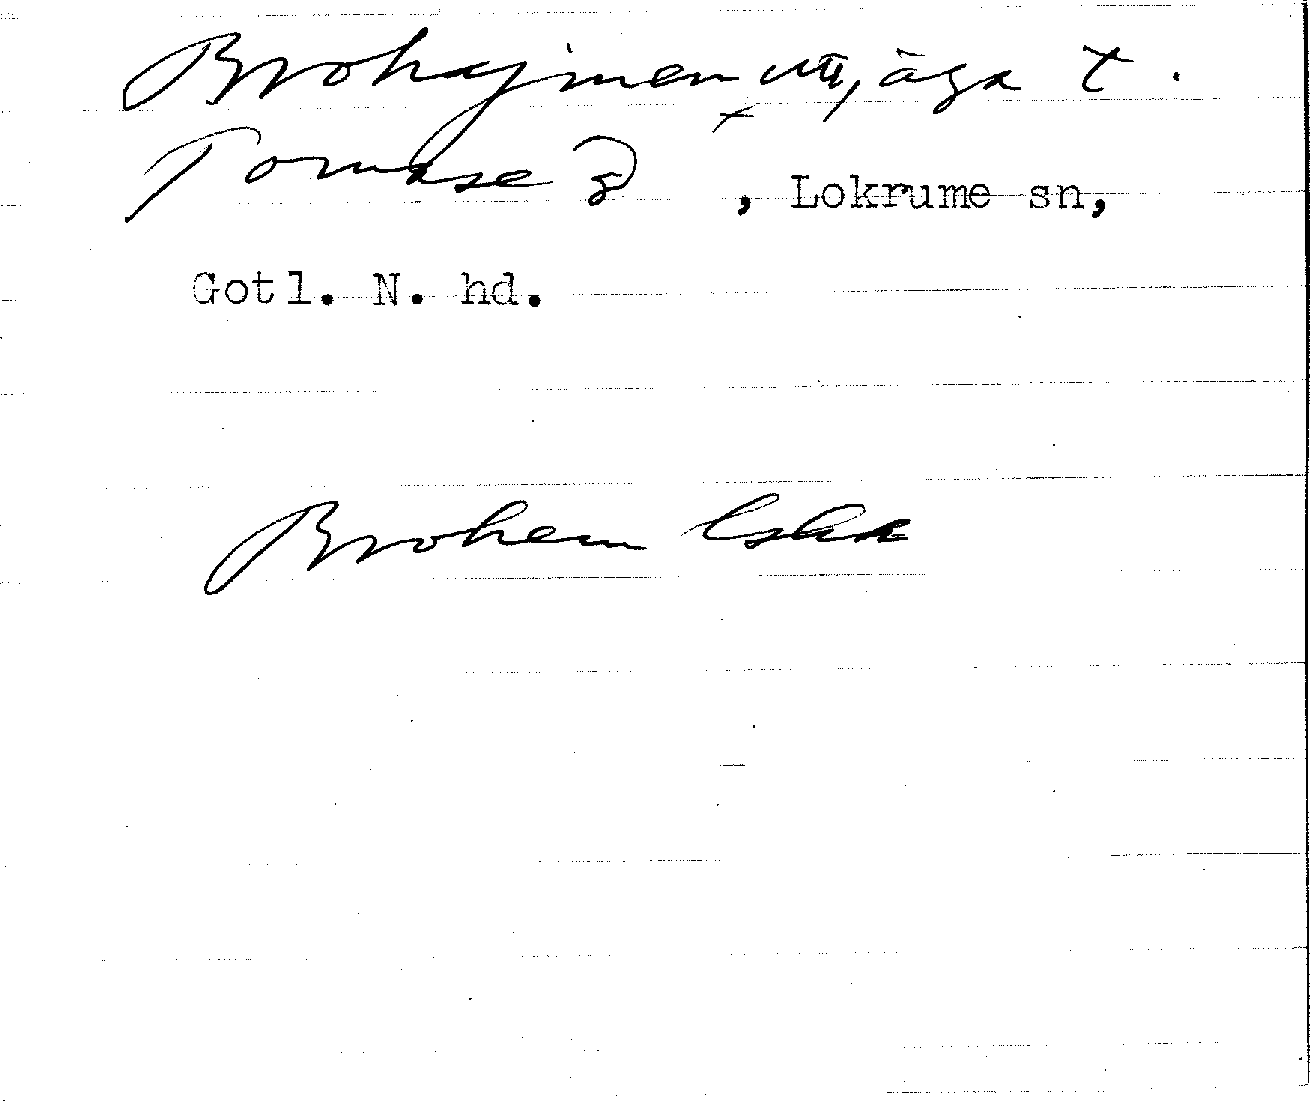 Brohajmen, åga t.
Tomase g, Lokrume sn,
Gotl. N. hd.
Brohem